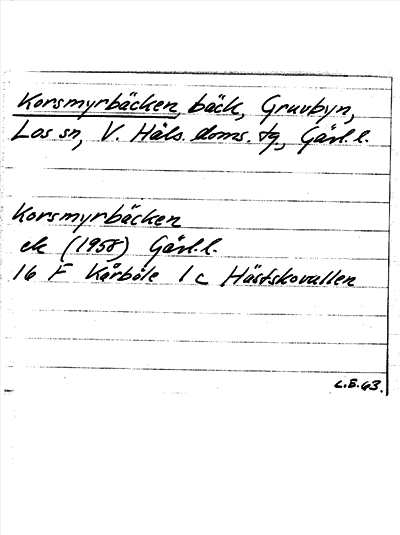 Korsmyrbäcken, bäck, Gruvbyn,
Los sn, V. Häls. doms. tg, Gävl. l.
Korsmyrbäcken
ek (1958) Gävl. l.
16 F Kårböle 1 c Hästskovallen
L.B. 63.